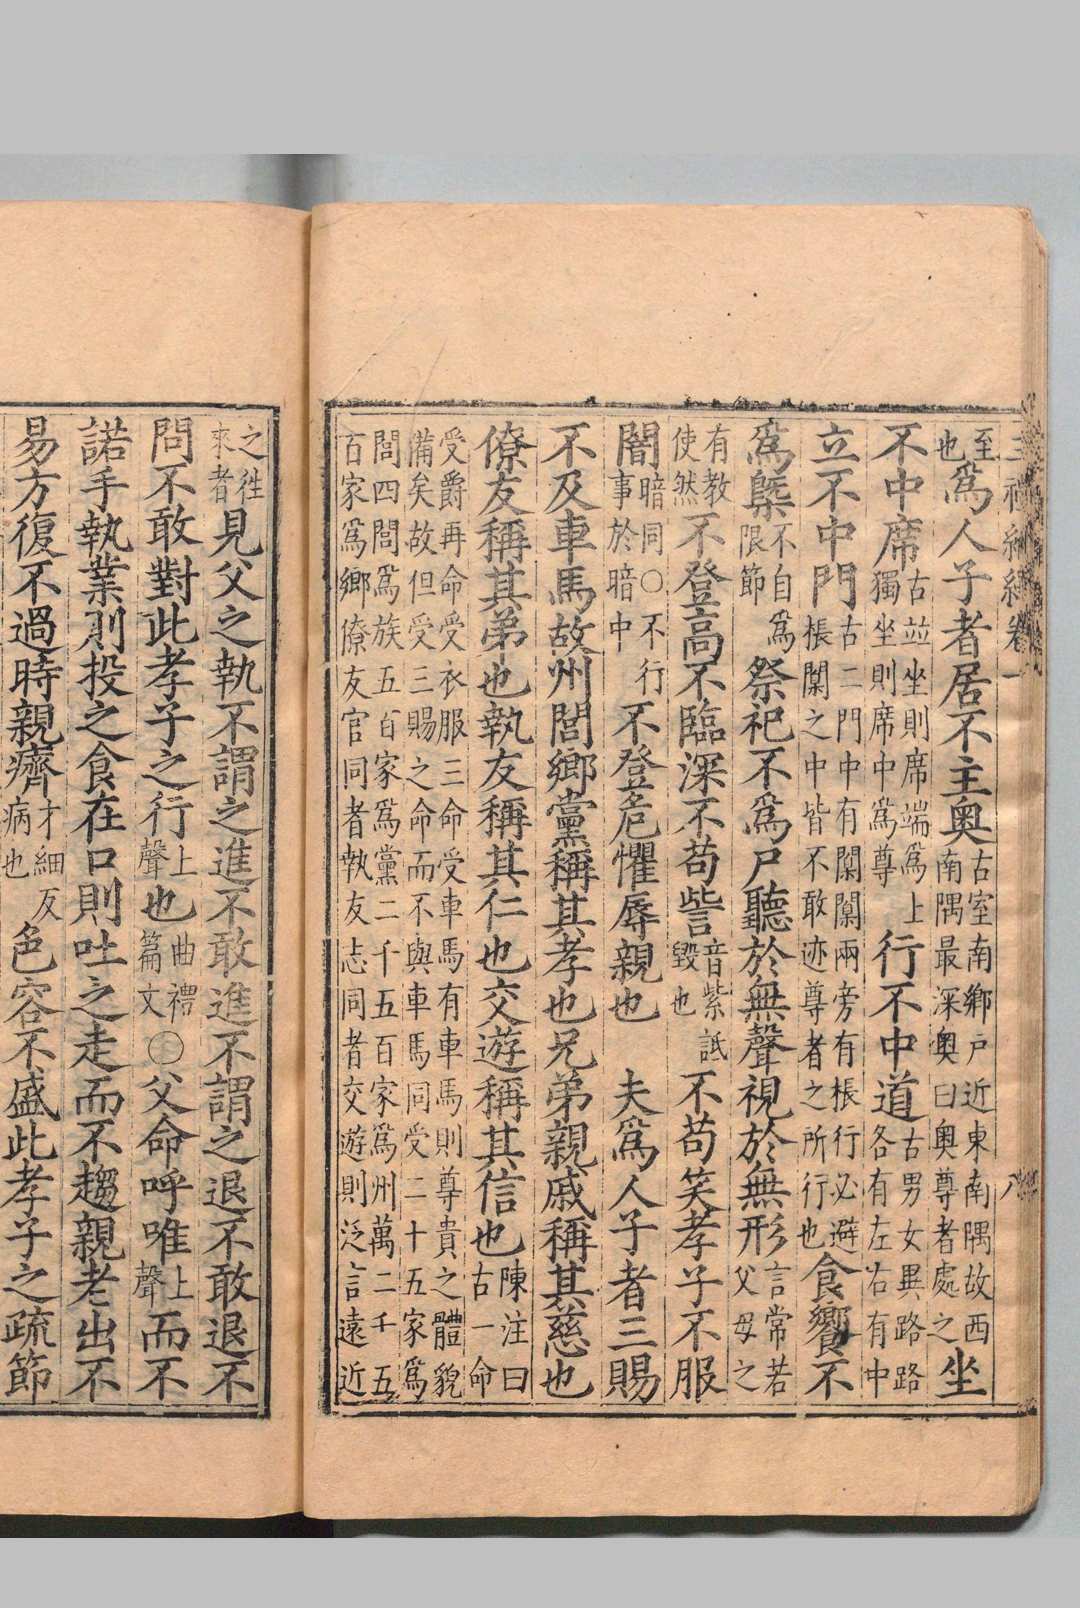 三禮編繹卷一 八
至也爲人子者居不主奧古室南鄉戶近東南隅故西南隅最深奧曰奧尊者處之坐
不中席古並坐則席端爲上獨坐則席中爲尊行不中道古男女異路路各有左右有中
立不中門古二門中有闑闑兩旁有棖行必避棖闑之中皆不敢迹尊者之所行也食饗不
爲槩不自爲限節祭祀不爲尸聽於無聲視於無形言常若父母之
有教使然不登高不臨深不苟訾音紫詆毀也不苟笑孝子不服
闇暗同○不行事於暗中不登危懼辱親也 夫爲人子者三賜
不及車馬故州閭鄉黨稱其孝也兄弟親戚稱其慈也
僚友稱其弟也執友稱其仁也交遊稱其信也陳注曰古一命
受爵再命受衣服三命受車馬有車馬則尊貴之體貌備矣故但受三賜之命而不與車馬同受二十五家爲
閭四閭爲族五百家爲黨二千五百家爲州萬二千五百家爲鄉僚友官同者執友志同者交遊則泛言遠近
之往來者見父之執不謂之進不敢進不謂之退不敢退不
問不敢對此孝子之行上聲也曲禮篇文○父命呼唯上聲而不
諾手執業則投之食在口則吐之走而不趨親老出不
易方復不過時親癠才細反病也色容不盛此孝子之疏節